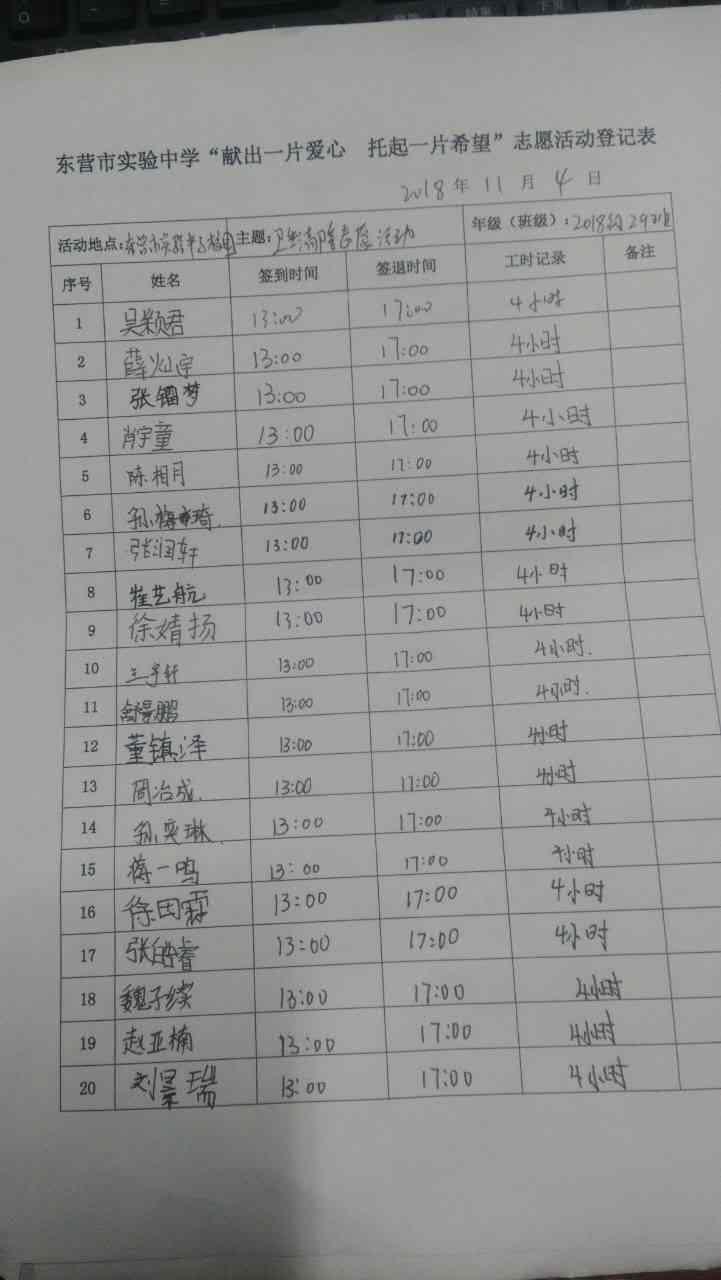 东营市实验中学“献出一片爱心 托起一片希望”志愿活动登记表
2018年11月4日
活动地点:东营市实验中学校园 主题:卫生清除志愿活动 年级(班级):2018级29班
序号 姓名 签到时间 签退时间 工时记录 备注
1 吴颖君 13:00 17:00 4小时
2 薛灿宇 13:00 17:00 4小时
3 张镏梦 13:00 17:00 4小时
4 肖宇童 13:00 17:00 4小时
5 陈相月 13:00 17:00 4小时
6 13:00 17:00 4小时
7 张润轩 13:00 17:00 4小时
8 崔艺航 13:00 17:00 4小时
9 徐婧扬 13:00 17:00 4小时
10 王宇轩 13:00 17:00 4小时.
11 13:00 17:00 4小时.
12 董镇泽 13:00 17:00 4小时
13 周冶成. 13:00 17:00 4小时
14 孙奕琳. 13:00 17:00 4小时
15 蒋一鸣 13:00 17:00 4小时
16 徐田霖 13:00 17:00 4小时
17 张皓睿 13:00 17:00 4小时
18 魏子续 13:00 17:00 4小时
19 赵亚楠 13:00 17:00 4小时
20 刘景瑞 13:00 17:00 4小时